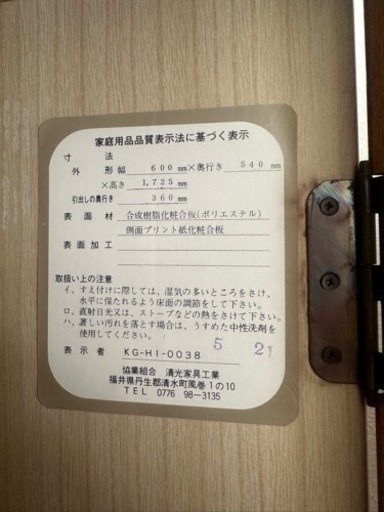 家庭用品品質表示法に基づく表示
寸法
外形幅 600mm×奥行き 540mm
×高さ 1,725mm
引出しの奥行き 360mm
表面材 合成樹脂化粧合板(ポリエステル)
側面プリント紙化粧合板
表面加工
取扱い上の注意
イ、すえ付けに際しては、湿気の多いところをさけ、
水平に保たれるよう床面の調節をして下さい。
ロ、直射日光又は、ストーブなどの熱をさけて下さい。
ハ、著しい汚れを落とす場合は、うすめた中性洗剤を
使用してください。
5 21
表示者 KG-HI-0038
協業組合 清光家具工業
福井県丹生郡清水町風巻1の10
TEL 0776 98-3135